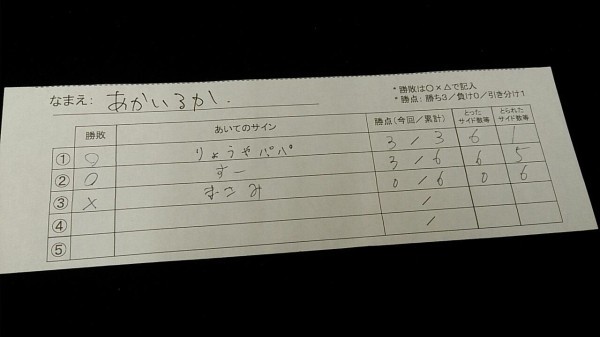 なまえ: あかいるか.
*勝敗は○×△で記入
*勝点: 勝ち3/負け0/引き分け1
勝敗 あいてのサイン 勝点(今回/累計) とった サイド数等 とられた サイド数等
① ○ りょうやパパ 3 / 3 6 1
② ○ すー 3 / 6 6 5
③ × まこみ 0 / 6 0 6
④ /
⑤ /